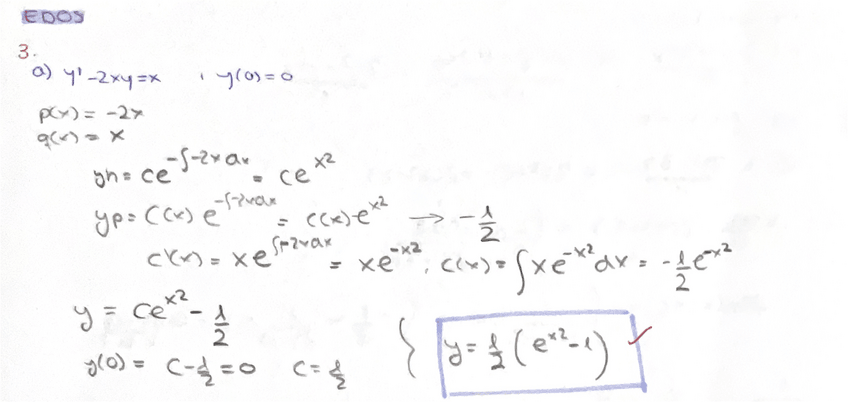 EDOS
3.
a) y' - 2xy = x , y(0) = 0
p(x) = -2x
q(x) = x
yh = ce^{-∫-2x dx} = ce^{x^2}
yp = C(x) e^{-∫-2x dx} = C(x) e^{x^2} → -1/2
C'(x) = x e^{∫-2x dx} = x e^{-x^2} ; C(x) = ∫ x e^{-x^2} dx = -1/2 e^{-x^2}
y = Ce^{x^2} - 1/2
y(0) = C - 1/2 = 0 C = 1/2 } y = 1/2 (e^{x^2} - 1) ✓